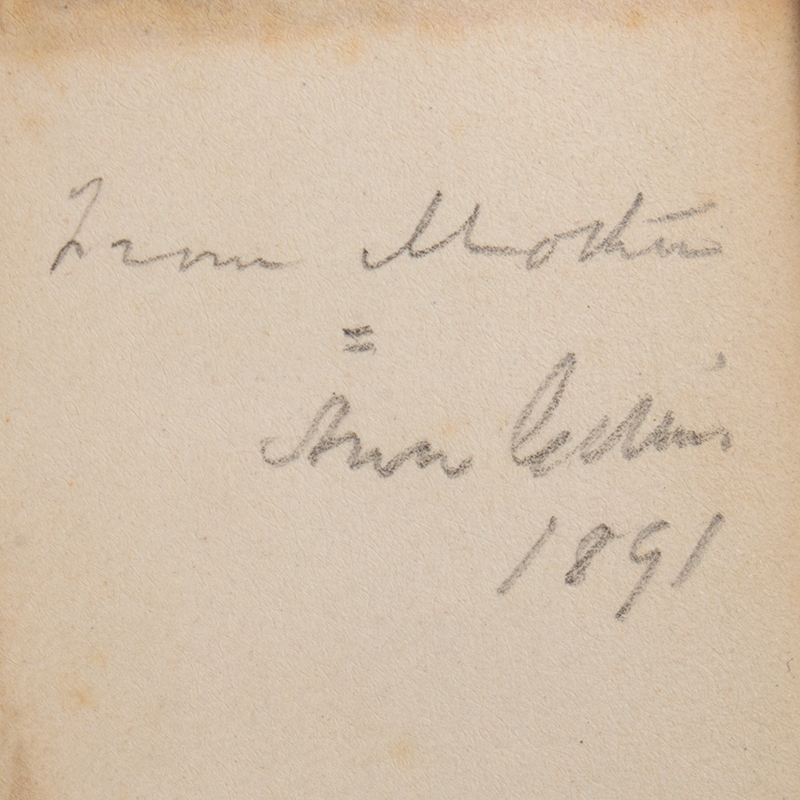 From Mother
=
Ann Collins
1891